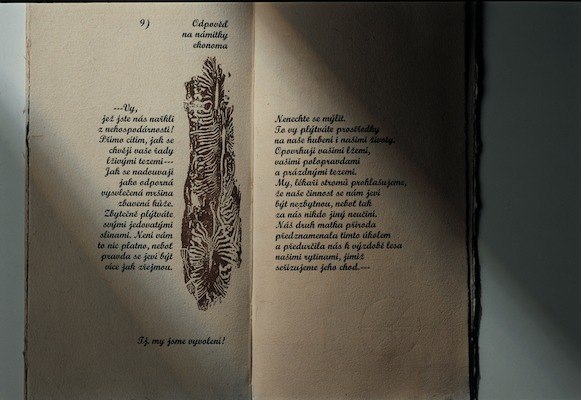 9) Odpověď
na námitky
ekonoma
---Vy,
jež jste nás nařkli
z nehospodárnosti!
Přímo cítím, jak se
chvějí vaše řady
lživými tezemi---
Jak se nadouvají
jako odporná
vysvlečená mršina
zbavená kůže.
Zbytečně plýtváte
svými jedovatými
slinami. Není vám
to nic platno, neboť
pravda se jeví být
více jak zřejmou.
Tj. my jsme vyvolení!
Nenechte se mýlit.
To vy plýtváte prostředky
na naše hubení i našimi životy.
Opovrhuji vašimi lžemi,
vašimi polopravdami
a prázdnými tezemi.
My, lékaři stromů prohlašujeme,
že naše činnost se nám jeví
být nezbytnou, neboť tak
za nás nikdo jiný neučiní.
Náš druh matka příroda
předznamenala tímto úkolem
a předurčila nás k výzdobě lesa
našimi rytinami, jimiž
seřizujeme jeho chod.---